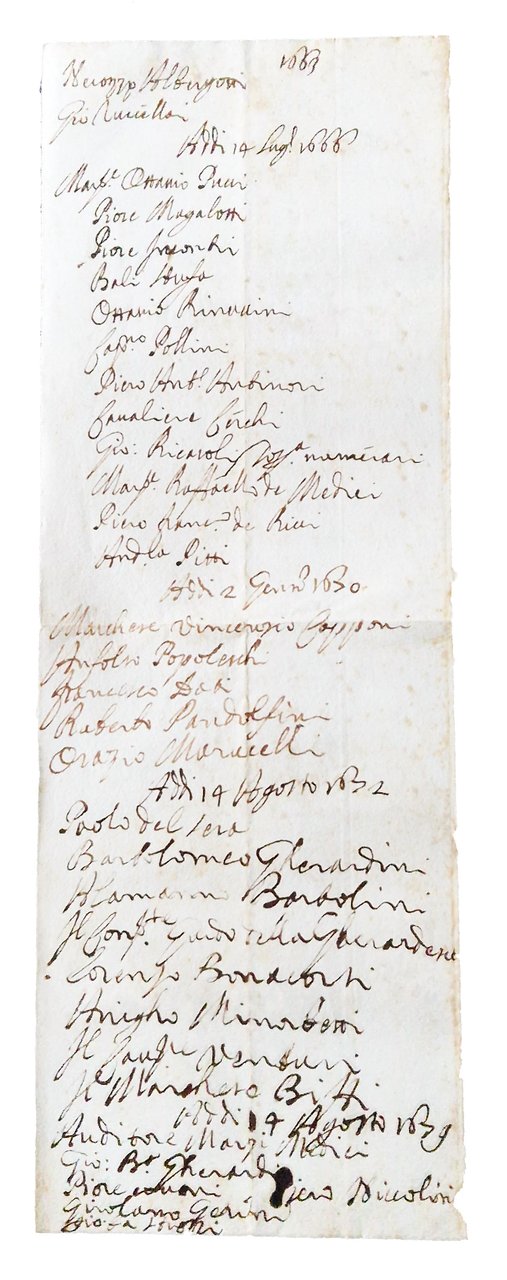 1663
Nerozzo Albergotti
Gio Rucellai
Addi 14 Lug.º 1666
March.e Ottavio Pucci
Priore Magalotti
Priore
Bali
Ottavio Rinuccini
Cap.no Pollini
Piero Ant.º Antinori
Cavaliere Cerchi
Gio: Ricasoli
March.e Raffaello de Medici
Piero Franc.º de Ricci
And.ea Pitti
Addi 2 Genn.º 1630
Marchese Vincenzio Capponi
Popoleschi
Francesco Dati
Roberto Pandolfini
Orazio Marucelli
Addi 14 Agosto 1632
Paolo del Sera
Bartolomeo Gherardini
Alamanno Bartolini
Il Con.te Guido della Gherardesca
Lorenzo Bonacorsi
Arrigho Minorbetti
Il Venturi
Il Marchese Biffi
Addi 14 Agosto 1639
Auditore Marzi Medici
Gio: B.a Gherardi
Piero Niccolini
Priore
Girolamo Gerini